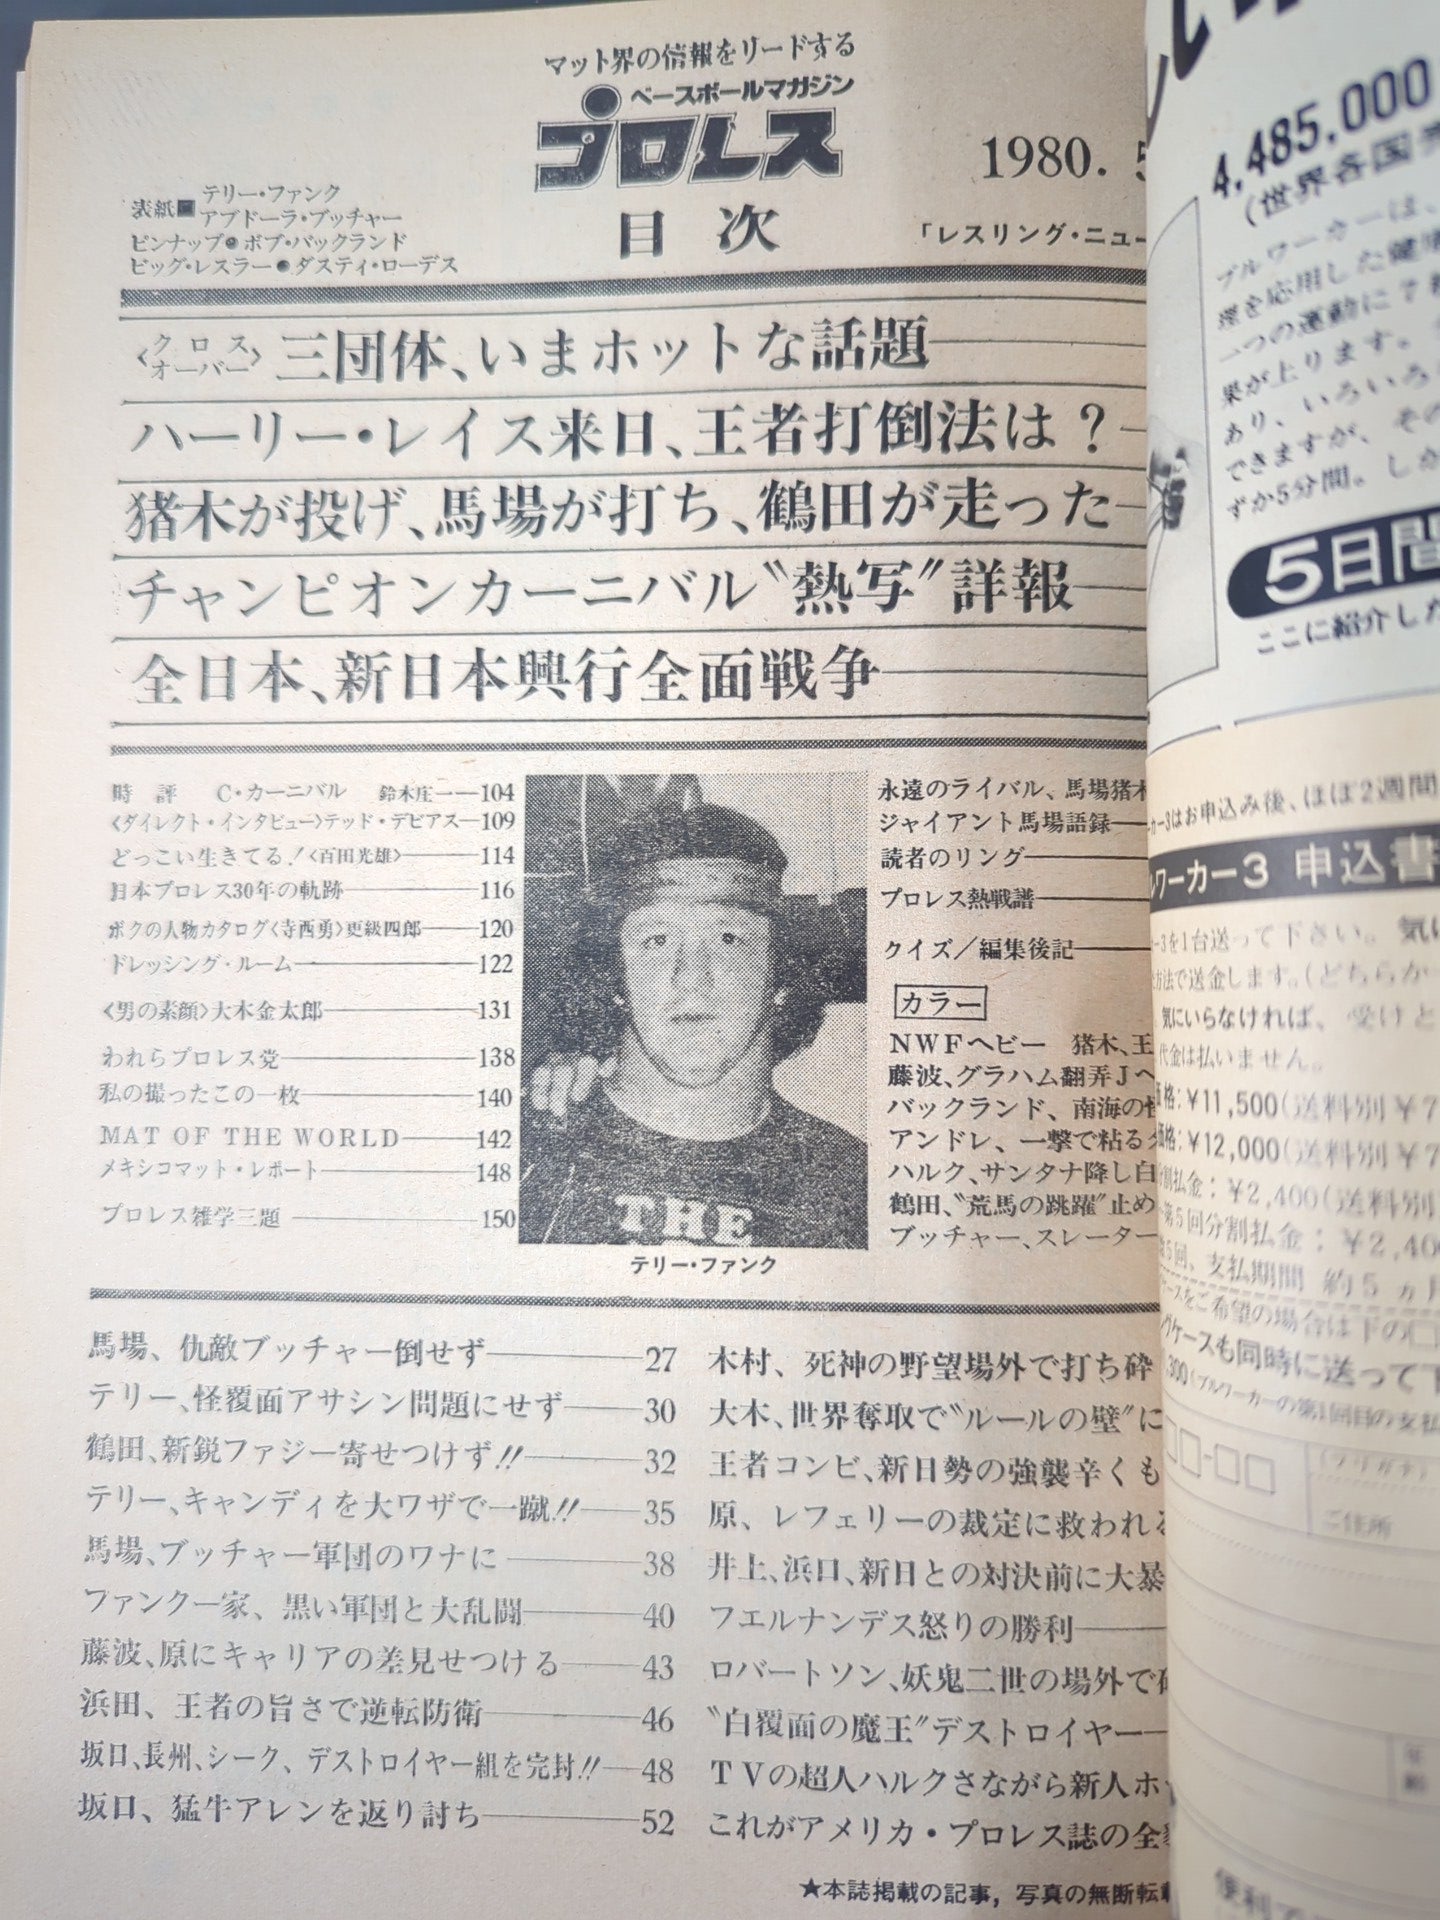 マット界の情報をリードする
ベースボールマガジン
プロレス
1980.
目次
「レスリング・ニュー
表紙■テリー・ファンク
アブドーラ・ブッチャー
ピンナップ●ボブ・バックランド
ビッグ・レスラー●ダスティ・ローデス
〈クロスオーバー〉三団体、いまホットな話題
ハーリー・レイス来日、王者打倒法は?
猪木が投げ、馬場が打ち、鶴田が走った
チャンピオンカーニバル〝熱写〟詳報
全日本、新日本興行全面戦争
時評 C・カーニバル 鈴木庄一104
〈ダイレクト・インタビュー〉テッド・デビアス109
どっこい生きてる!〈百田光雄〉114
日本プロレス30年の軌跡116
ボクの人物カタログ〈寺西勇〉更級四郎120
ドレッシング・ルーム122
〈男の素顔〉大木金太郎131
われらプロレス党138
私の撮ったこの一枚140
MAT OF THE WORLD142
メキシコマット・レポート148
プロレス雑学三題150
THE
テリー・ファンク
永遠のライバル、馬場猪木
ジャイアント馬場語録
読者のリング
プロレス熱戦譜
クイズ/編集後記
カラー
NWFヘビー 猪木、王
藤波、グラハム翻弄Jヘ
バックランド、南海の
アンドレ、一撃で粘る
ハルク、サンタナ降し白
鶴田、〝荒馬の跳躍〟止め
ブッチャー、スレーター
馬場、仇敵ブッチャー倒せず27
テリー、怪覆面アサシン問題にせず30
鶴田、新鋭ファジー寄せつけず!!32
テリー、キャンディを大ワザで一蹴!!35
馬場、ブッチャー軍団のワナに38
ファンク一家、黒い軍団と大乱闘40
藤波、原にキャリアの差見せつける43
浜田、王者の旨さで逆転防衛46
坂口、長州、シーク、デストロイヤー組を完封!!48
坂口、猛牛アレンを返り討ち52
木村、死神の野望場外で打ち砕
大木、世界奪取で〝ルールの壁〟に
王者コンビ、新日勢の強襲辛くも
原、レフェリーの裁定に救われる
井上、浜口、新日との対決前に大暴
フエルナンデス怒りの勝利
ロバートソン、妖鬼二世の場外で
〝白覆面の魔王〟デストロイヤー
TVの超人ハルクさながら新人ホ
これがアメリカ・プロレス誌の全
★本誌掲載の記事,写真の無断転載
4,485,000
(世界各国
ブルワーカーは、
理を応用した健
一つの運動に7
果が上ります。
あり、いろいろ
できますが、その
ずか5分間。しか
5日間
ここに紹介した
カー3はお申込み後、ほぼ2週間
ワーカー3 申込書
ー3を1台送って下さい。気に
方法で送金します。(どちらか
気にいらなければ、受けと
代金は払いません。
価格:¥11,500(送料別¥7
価格:¥12,000(送料別¥7
割払金:¥2,400(送料別
第5回分割払金:¥2,40
5回、支払期間 約5ヵ月
ケースをご希望の場合は下の□
グケースも同時に送って下
300(ブルワーカーの第1回目の支払
(フリガナ)
ご住所
年齢
便利で